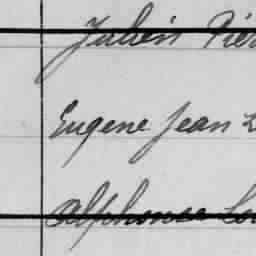 Julien Pier
Eugene Jean L
Alphonse Lou